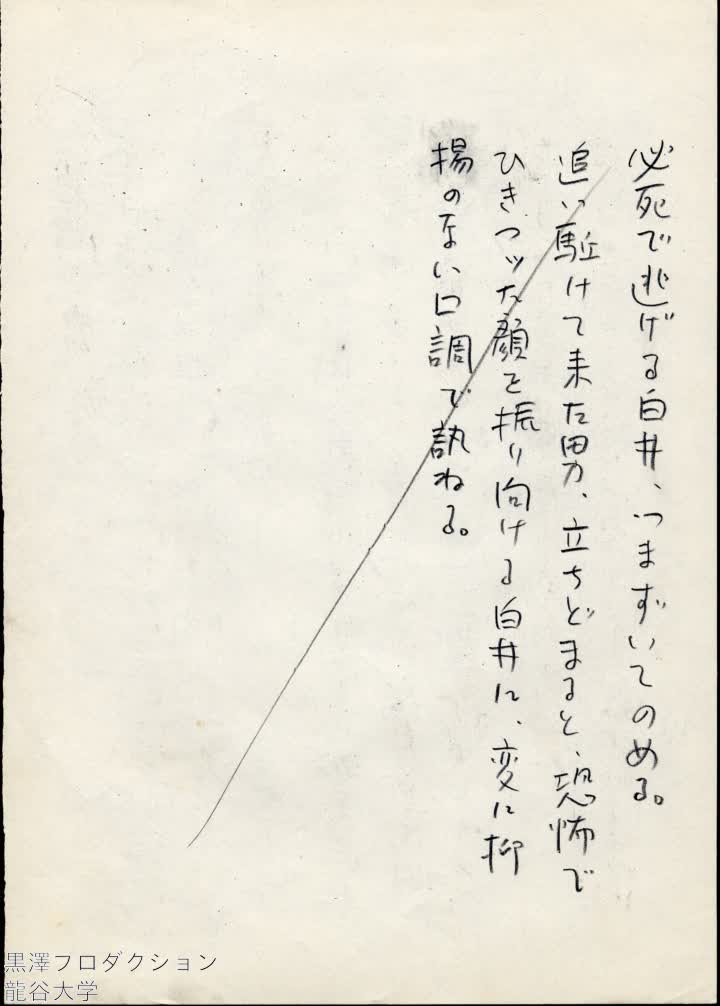 必死で逃げる白井、つまずいてのめる。
追い駈けて来た男、立ちどまると、恐怖で
ひきつッた顔を振り向ける白井に、変に抑
揚のない口調で訊ねる。
黒澤プロダクション
龍谷大学